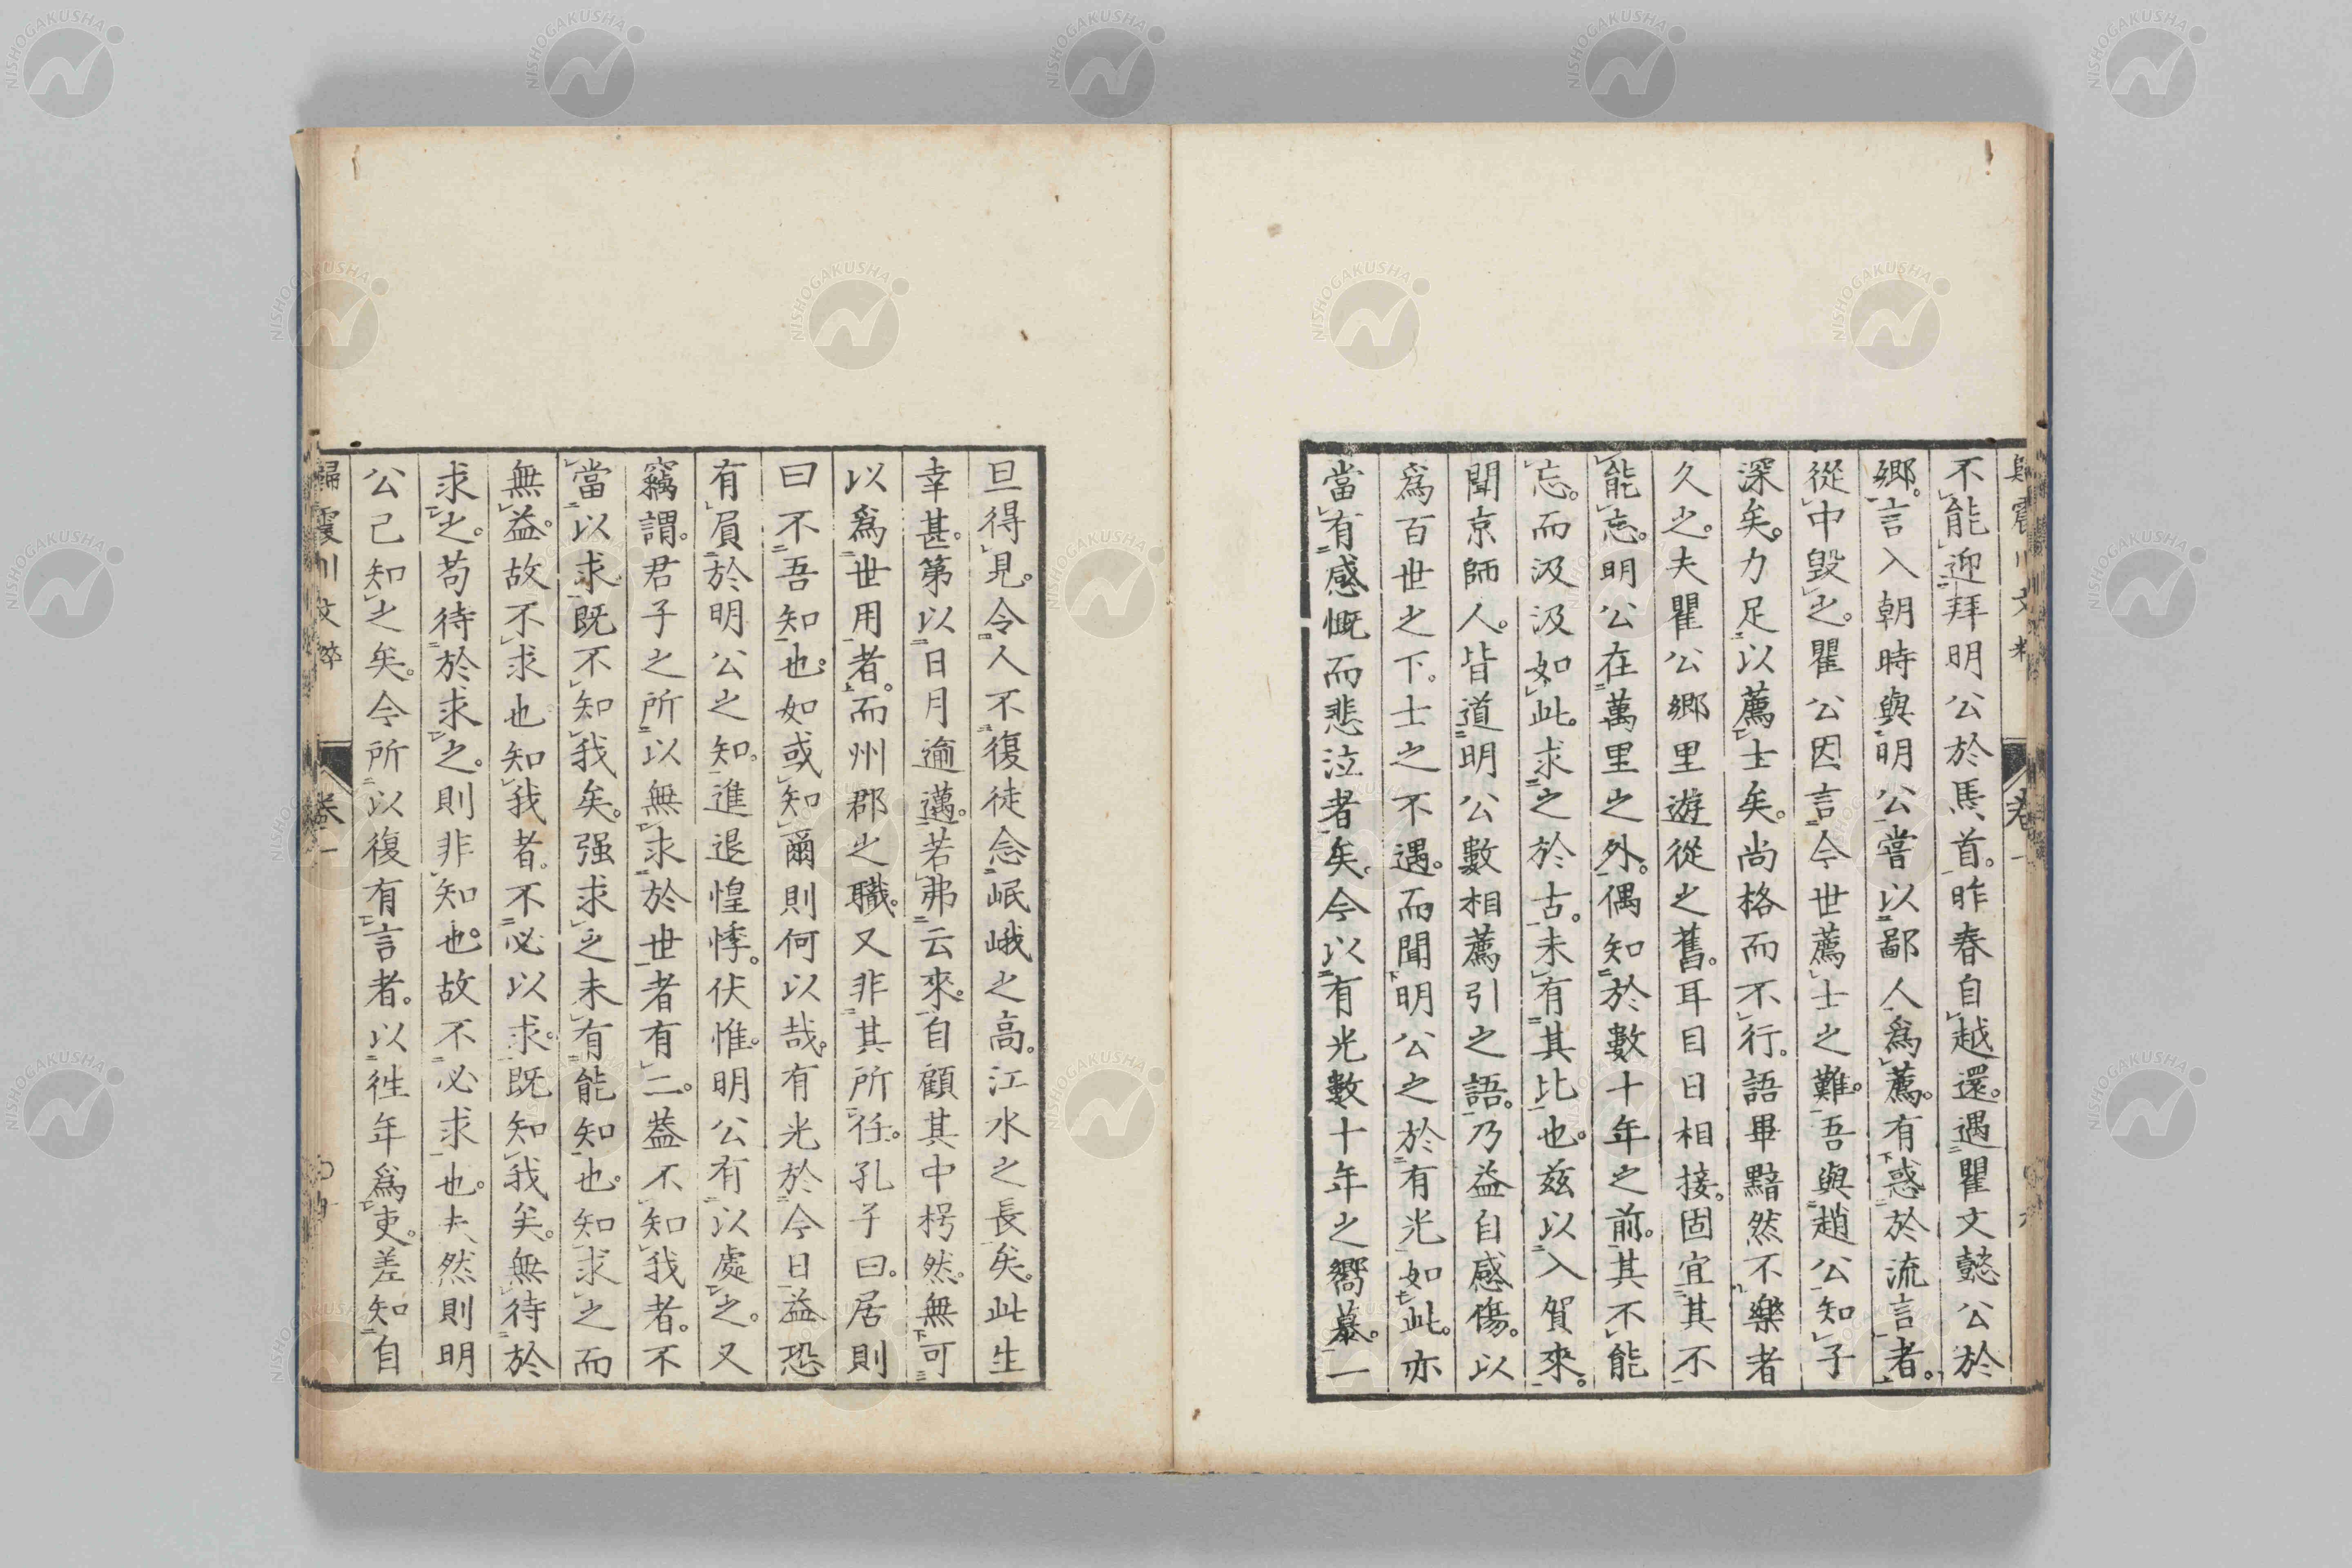 不能迎拜明公於馬首。昨春自越還。遇瞿文懿公於
鄉。言入朝時與明公嘗以鄙人爲薦。有惑於流言者。
從中毀之。瞿公因言今世薦士之難。吾與趙公知子
深矣。力足以薦士矣。尚格而不行。語畢黯然不樂者
久之。夫瞿公鄉里遊從之舊。耳目日相接。固宜其不
能忘。明公在萬里之外。偶知於數十年之前。其不能
忘。而汲汲如此。求之於古。未有其比也。茲以入賀來。
聞京師人。皆道明公數相薦引之語。乃益自感傷。以
爲百世之下。士之不遇。而聞明公之於有光如此。亦
當有感慨而悲泣者矣。今以有光數十年之嚮慕。一
旦得見。令人不復徒念岷峨之高。江水之長矣。此生
幸甚。第以日月逾邁。若弗云來。自顧其中枵然。無可
以爲世用者。而州郡之職。又非其所任。孔子曰。居則
曰不吾知也。如或知爾則何以哉。有光於今日益恐
有負於明公之知。進退惶悸。伏惟。明公有以處之。又
竊謂。君子之所以無求於世者有二。葢不知我者。不
當以求。既不知我矣。强求之未有能知也。知求之而
無益。故不求也知我者。不必以求。既知我矣。無待於
求之。苟待於求之。則非知也。故不必求也。夫然則明
公已知之矣。今所以復有言者。以徃年爲吏。差知自
歸震川文粹 卷一